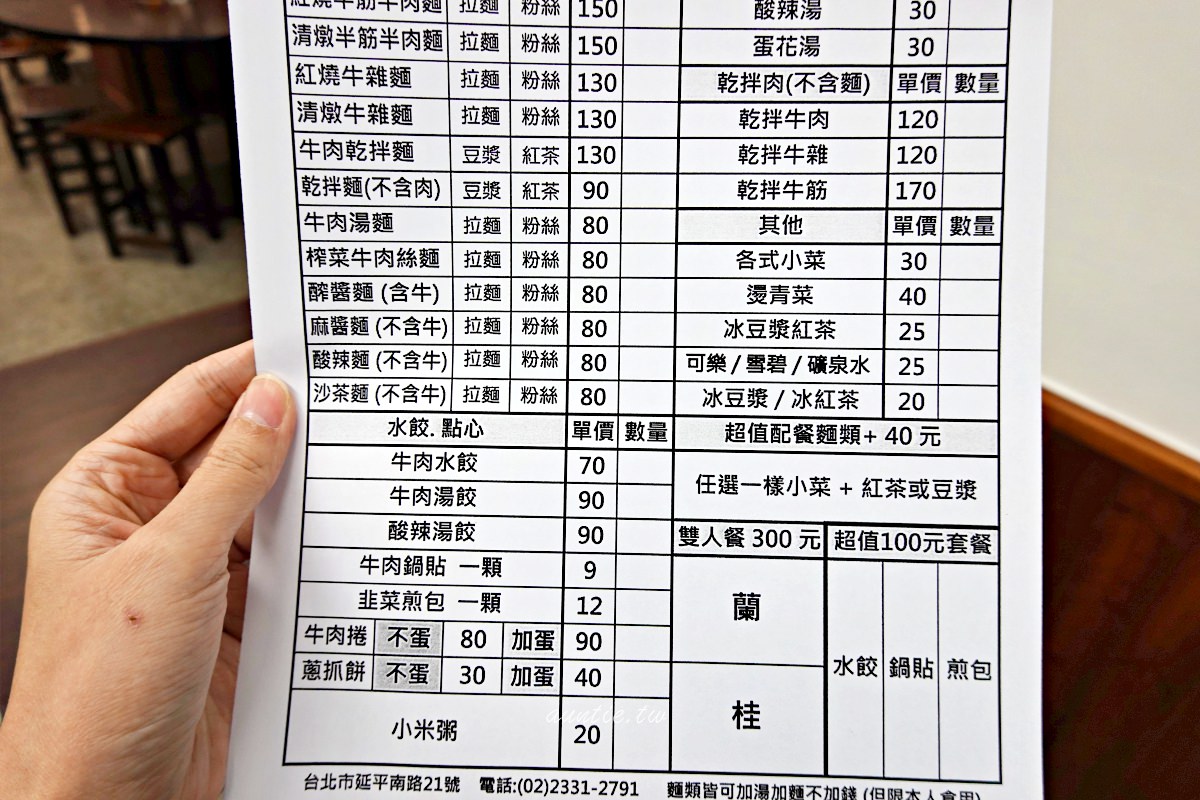 紅燒半筋半肉麵 拉麵 粉絲 150
清燉半筋半肉麵 拉麵 粉絲 150
紅燒牛雜麵 拉麵 粉絲 130
清燉牛雜麵 拉麵 粉絲 130
牛肉乾拌麵 豆漿 紅茶 130
乾拌麵(不含肉) 豆漿 紅茶 90
牛肉湯麵 拉麵 粉絲 80
榨菜牛肉絲麵 拉麵 粉絲 80
醡醬麵 (含牛) 拉麵 粉絲 80
麻醬麵 (不含牛) 拉麵 粉絲 80
酸辣麵 (不含牛) 拉麵 粉絲 80
沙茶麵 (不含牛) 拉麵 粉絲 80
水餃. 點心 單價 數量
牛肉水餃 70
牛肉湯餃 90
酸辣湯餃 90
牛肉鍋貼 一顆 9
韭菜煎包 一顆 12
牛肉捲 不蛋 80 加蛋 90
蔥抓餅 不蛋 30 加蛋 40
小米粥 20
酸辣湯 30
蛋花湯 30
乾拌肉(不含麵) 單價 數量
乾拌牛肉 120
乾拌牛雜 120
乾拌牛筋 170
其他 單價 數量
各式小菜 30
燙青菜 40
冰豆漿紅茶 25
可樂 / 雪碧 / 礦泉水 25
冰豆漿 / 冰紅茶 20
超值配餐麵類+ 40 元
任選一樣小菜 + 紅茶或豆漿
雙人餐 300 元 超值100元套餐
蘭
桂
水餃 鍋貼 煎包
台北市延平南路21號 電話:(02)2331-2791 麵類皆可加湯加麵不加錢 (但限本人食用)
auntie.tw